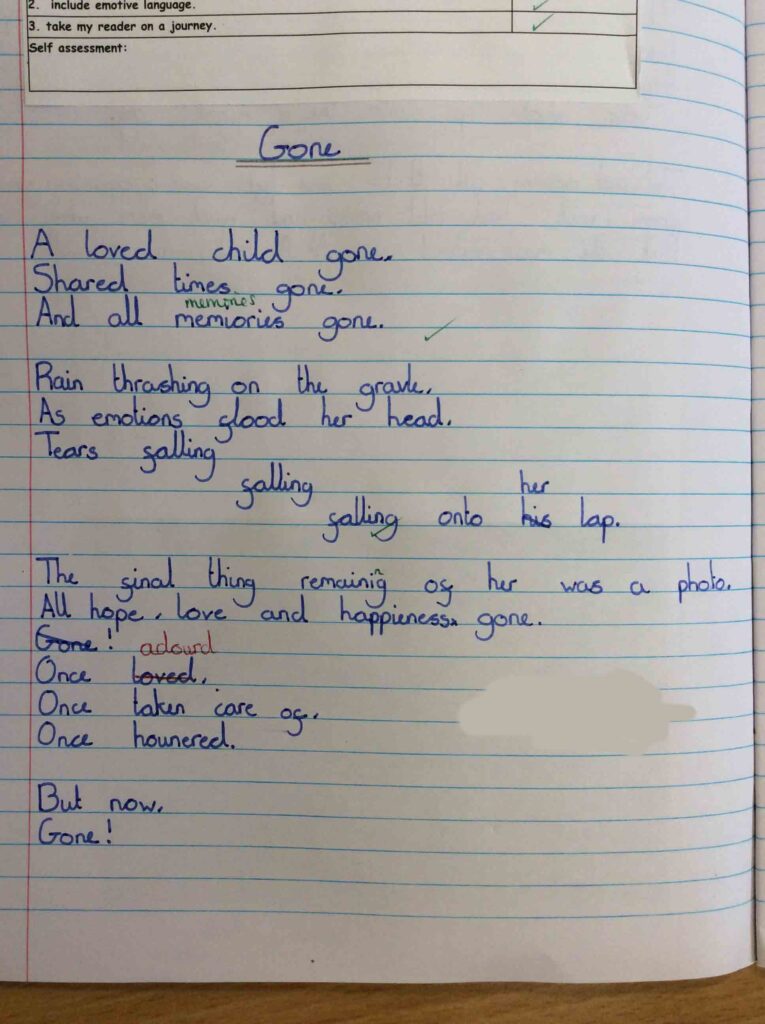 2. include emotive language.
3. take my reader on a journey.
Self assessment:
Gone
A loved child gone.
Shared times gone.
memories
And all memiories gone.
Rain thrashing on the gravle,
As emotions flood her head.
Tears falling
falling
her
falling onto his lap.
The final thing remaining of her was a photo.
All hope, love and happieness, gone.
Gone! adourd
Once loved,
Once taken care of,
Once hounered.
But now,
Gone!